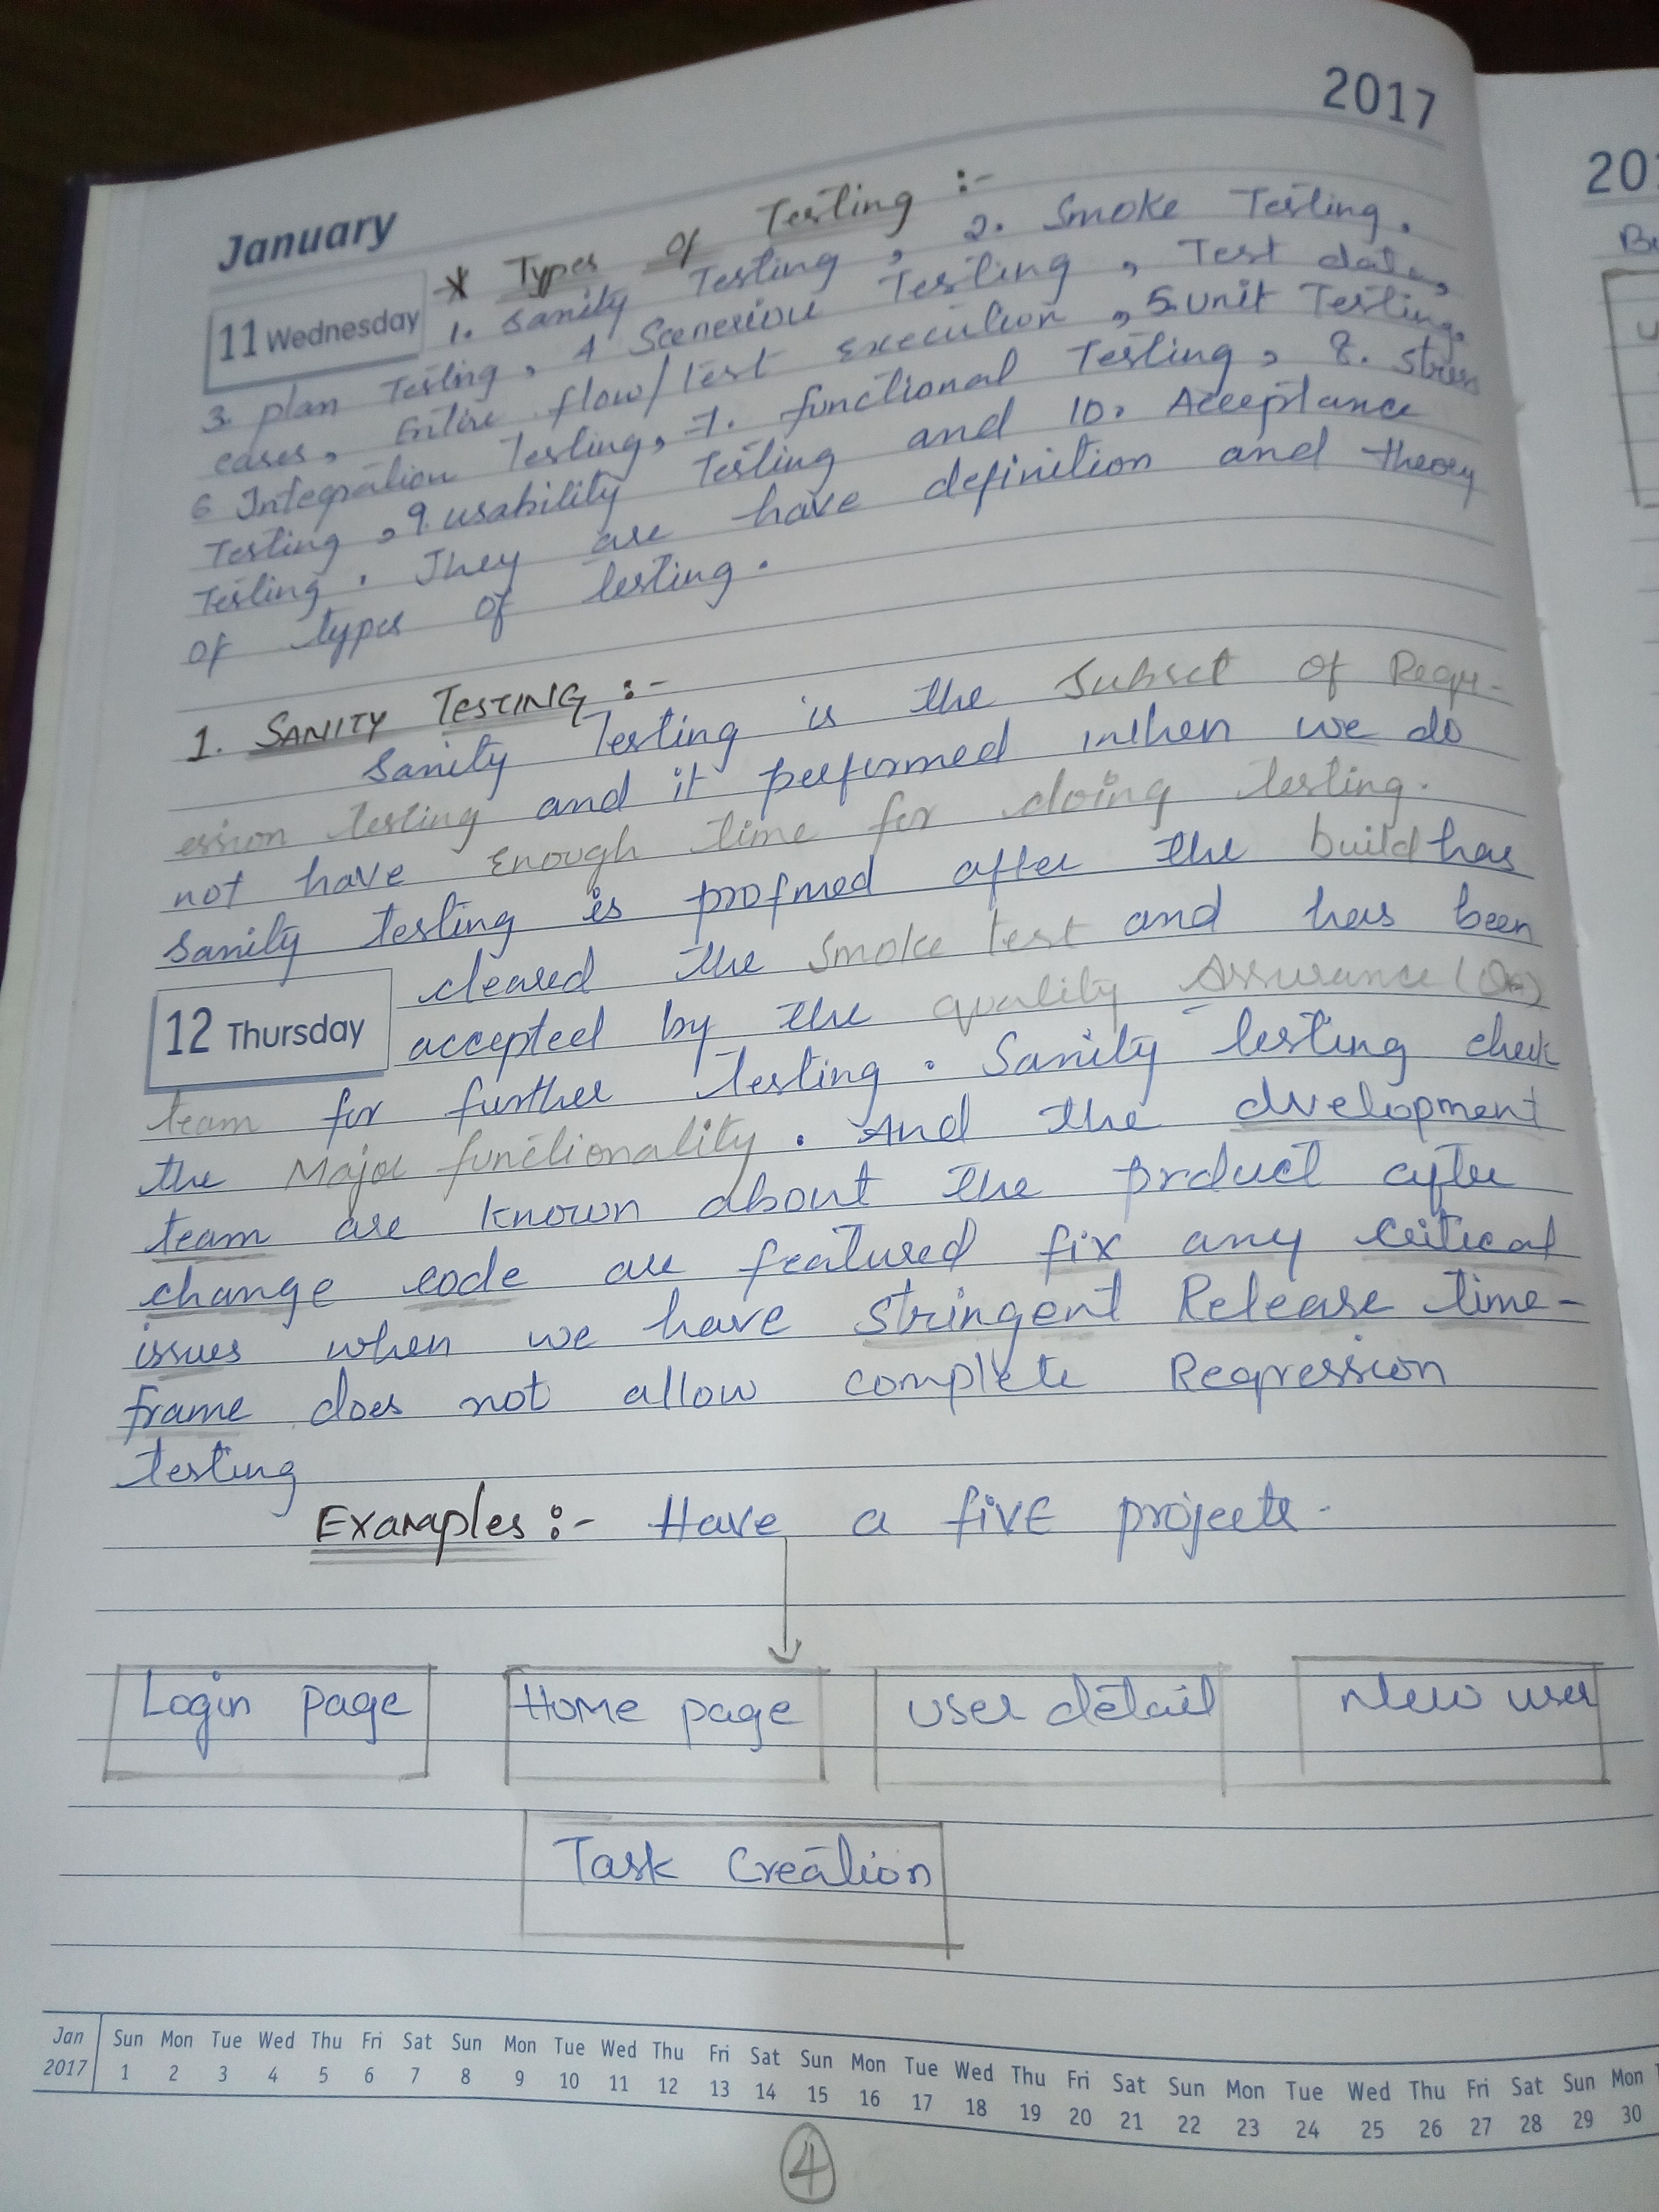 2017
January
* Types of Testing :-
11 Wednesday
1. Sanity Testing, 2. Smoke Testing.
3. plan Testing, 4 Sceneriou Testing, Test data,
cases, Entire flow/Test execution, 5. unit Testing,
6 Integration Testing, 7. functional Testing, 8. Stress
Testing, 9. usability Testing and 10. Acceptance
Testing. They are have definition and theory
of types of testing.
1. SANITY TESTING :-
Sanity Testing is the Subset of Regr-
ession testing and it performed inthen we do
not have Enough time for doing testing.
Sanity testing is profmed after the build has
cleared the Smoke test and has been
12 Thursday
accepted by the quality Assurance (QA)
team for further Testing. Sanity testing chek
the Major functionality. And the dvelopment
team are known about the prduct after
change code are featured fix any critical
issues when we have Stringent Release time-
frame does not allow complete Regression
testing
Examples :- Have a fiVE projects.
Login page Home page user detail New user
Task Creation
Jan Sun Mon Tue Wed Thu Fri Sat Sun Mon Tue Wed Thu Fri Sat Sun Mon Tue Wed Thu Fri Sat Sun Mon Tue Wed Thu Fri Sat Sun Mon
2017 1 2 3 4 5 6 7 8 9 10 11 12 13 14 15 16 17 18 19 20 21 22 23 24 25 26 27 28 29 30
4